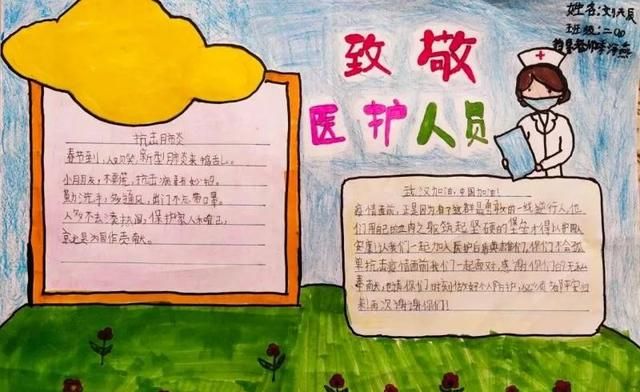 致敬
医护人员
姓名:刘天辰
班级:二
抗击肺炎
春节到,人人笑,新型肺炎来捣乱。
小朋友,不要慌,抗击病毒有妙招。
勤洗手,多通风,出门不忘带口罩。
人多不去凑热闹,保护家人和自己,
就是为国作贡献。
武汉加油,中国加油!
疫情面前,正是因为有了这群最勇敢的一线逆行人,他
们用自己的血肉之躯筑起坚硬的堡
安康,让我们一起加入医护
单,抗击疫情面前我们一起面对,感谢你们的无私
奉献,也请你们时刻做好个人防护,
来,再次谢谢你们!